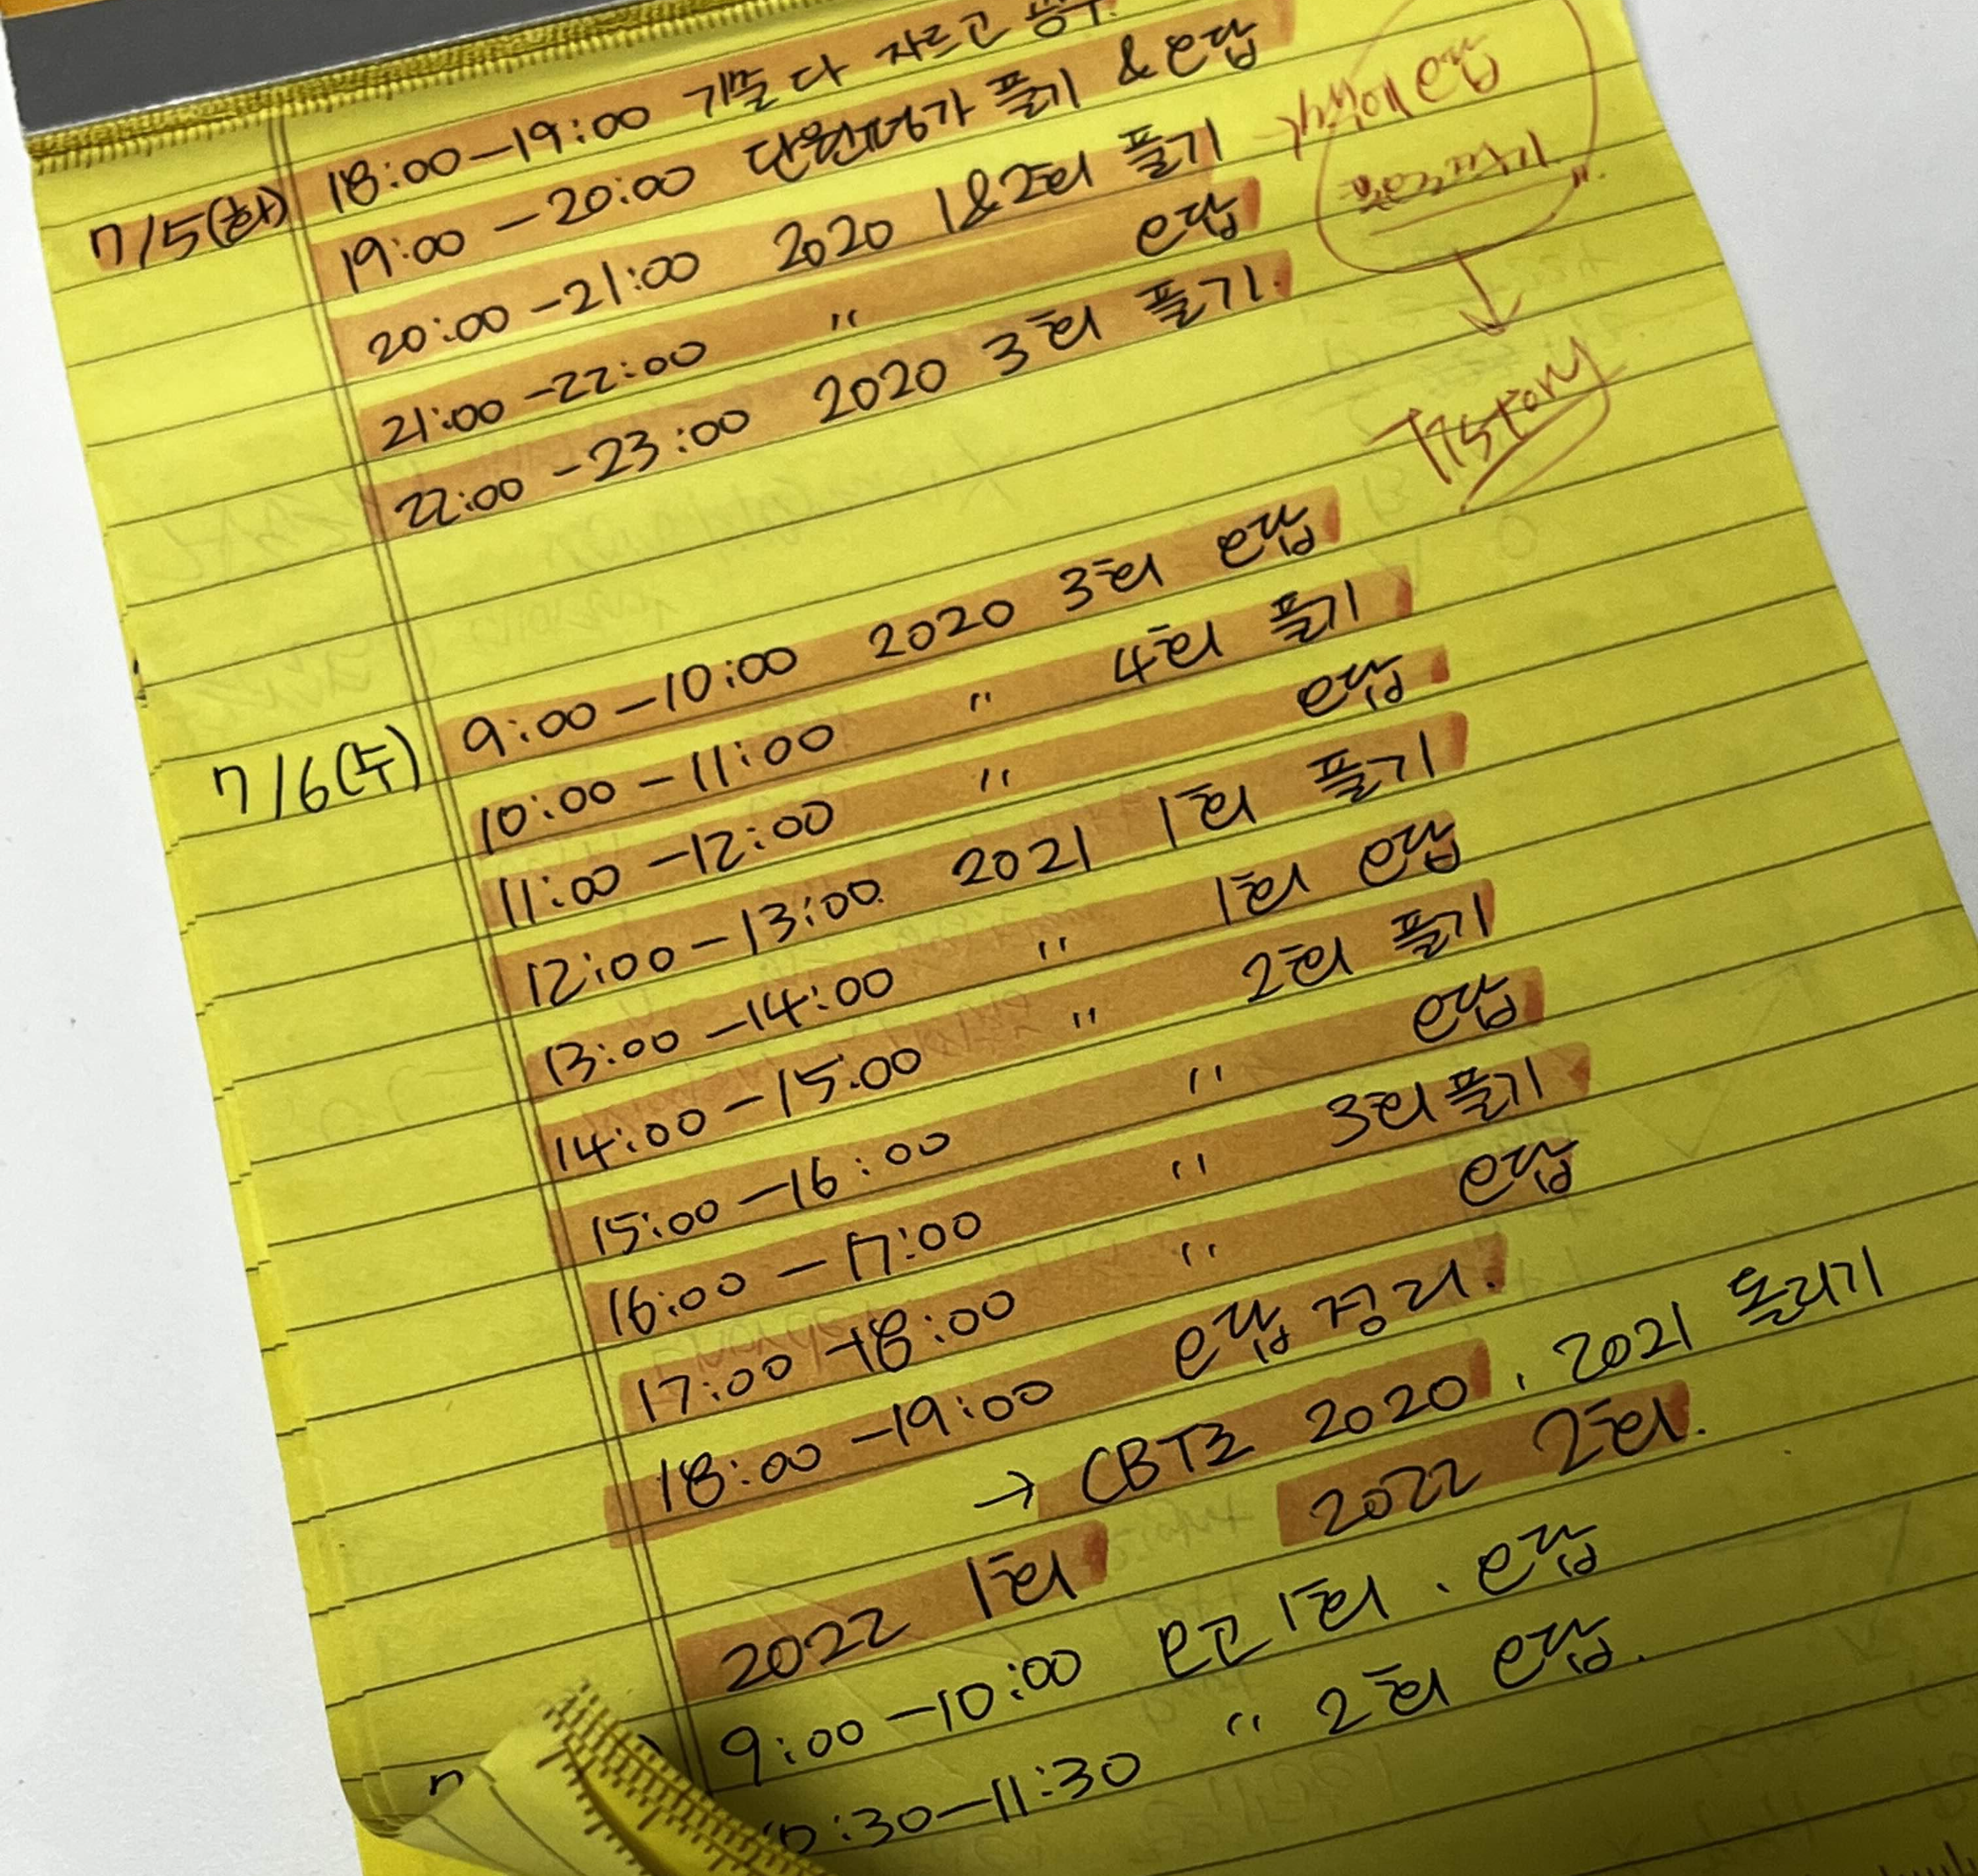 18:00-19:00 기출 다 자르고
7/5(화) 19:00-20:00 단원평가 풀기 & 오답
20:00-21:00 2020 1&2회 풀기
21:00-22:00 " 오답
22:00-23:00 2020 3회 풀기.
오답
Tistory
7/6(수) 9:00-10:00 2020 3회 오답
10:00-11:00 " 4회 풀기
11:00-12:00 " 오답
12:00-13:00 2021 1회 풀기
13:00-14:00 " 1회 오답
14:00-15:00 " 2회 풀기
15:00-16:00 " 오답
16:00-17:00 " 3회 풀기
17:00-18:00 " 오답
18:00-19:00 오답 정리.
→ CBT로 2020, 2021 돌리기
2022 1회 2022 2회.
9:00-10:00 모고 1회. 오답
:30-11:30 " 2회 오답.